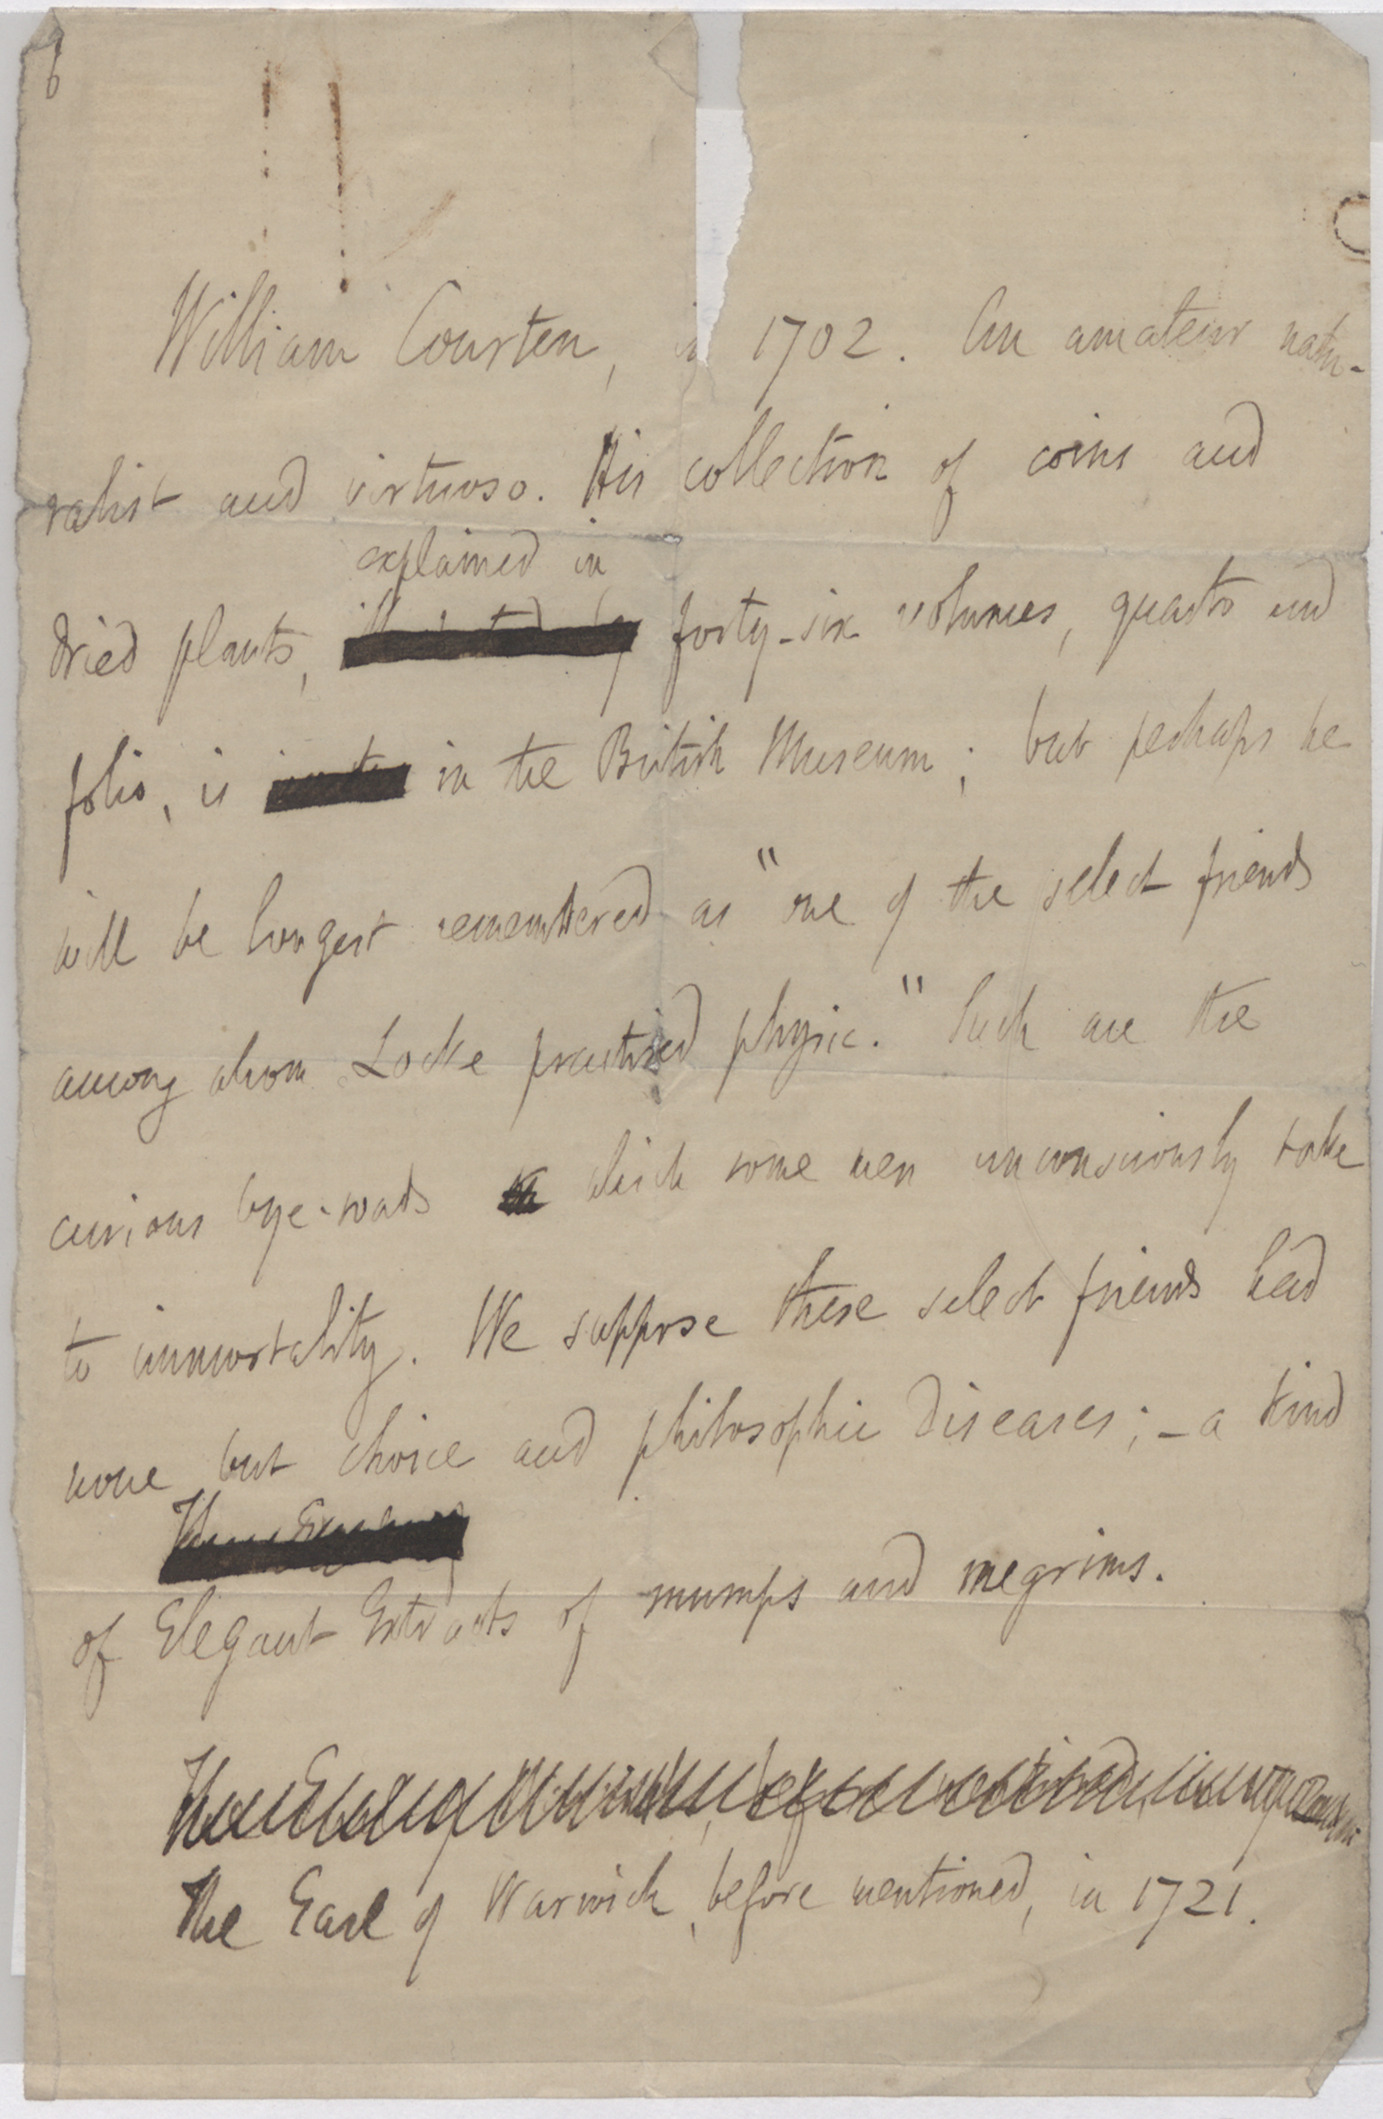 6
William Courten, in 1702. An amateur natu-
ralist and virtuoso. His collection of coins and
explained in
dried plants, forty-six volumes, quarto and
folio, is in the British Museum; but perhaps he
will be longest remembered as "one of the select friends
among whom Locke practised physic." Such are the
curious bye-roads which some men unconsciously take
to immortality. We suppose these select friends had
none but choice and philosophic diseases;—a kind
of Elegant Extracts of mumps and megrims.
The Earl of Warwick, before mentioned, in
The Earl of Warwick, before mentioned, in 1721.